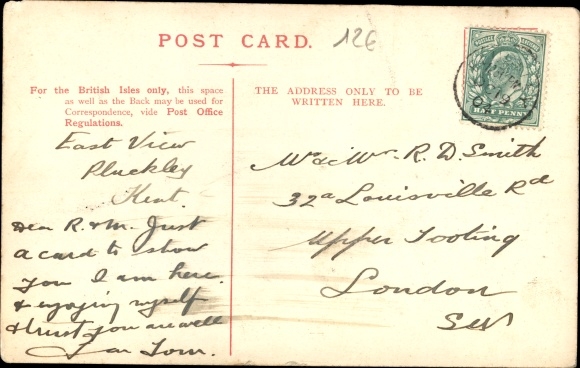 POST CARD.
12G
For the British Isles only, this space
as well as the Back may be used for
Correspondence, vide Post Office
Regulations.
East View
Pluckley
Kent.
Dear R & M. Just
a card to show
you I am here.
& enjoying myself
& trust you are well
Tom.
THE ADDRESS ONLY TO BE
WRITTEN HERE.
HALF PENNY
R. D. Smith
32a Louisville Rd
Upper Tooting
London
SW